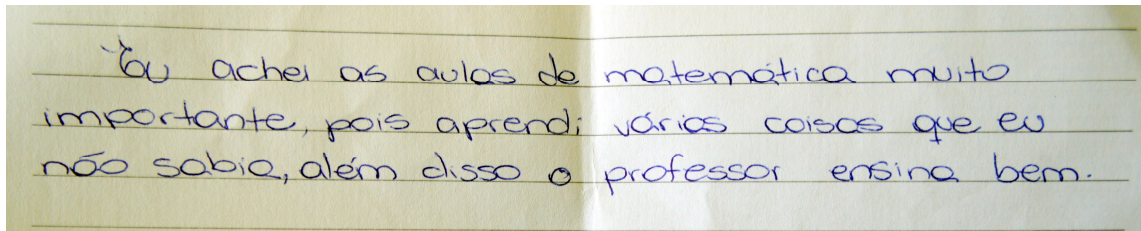 Eu achei as aulas de matemática muito
importante, pois aprendi várias coisas que eu
não sabia, além disso o professor ensina bem.